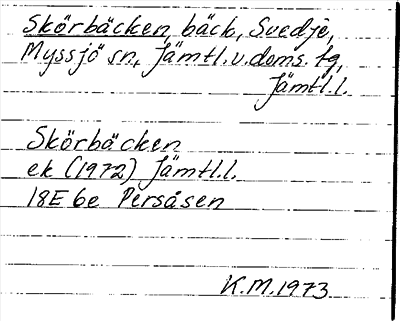 Skörbäcken, bäck, Svedje,
Myssjö sn, Jämtl.v.doms. tg,
Jämtl.l.
Skörbäcken
ek (1972) Jämtl.l.
18E 6e Persåsen
K.M.1973